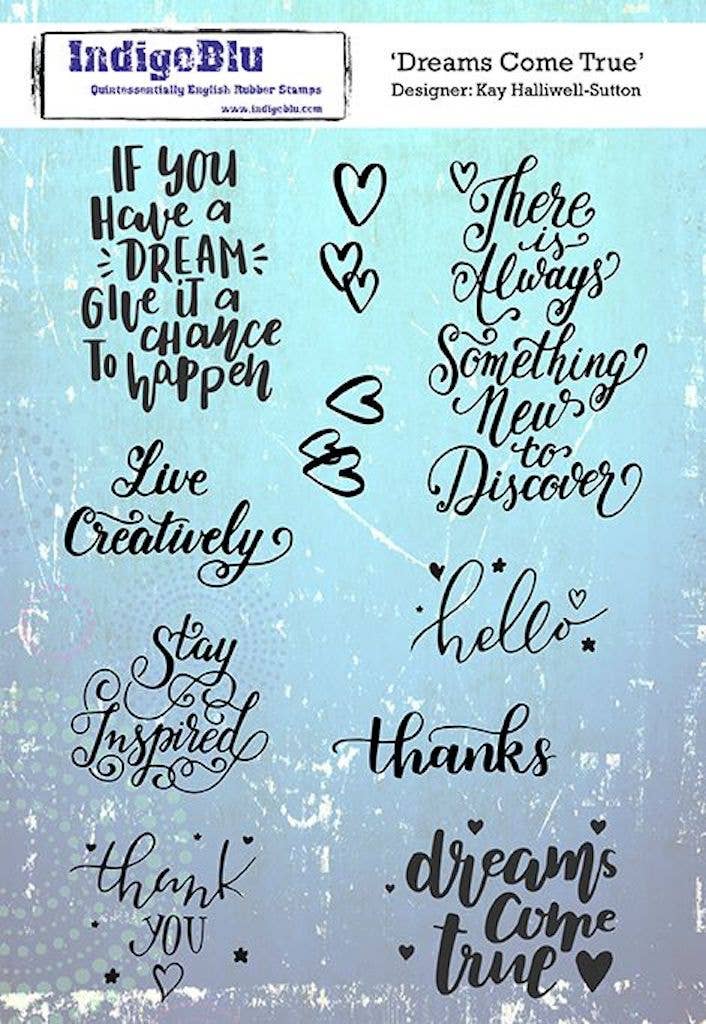 IndigoBlu
Quintessentially English Rubber Stamps
www.indigoblu.com
‘Dreams Come True’
Designer: Kay Halliwell-Sutton
IF YOU
Have a
DREAM
GIVE iT a
CHANCE
To happen
There
is
Always
Something
New
to
Discover
Live
Creatively
hello
Stay
Inspired
thanks
thank
YOU
dreams
come
true